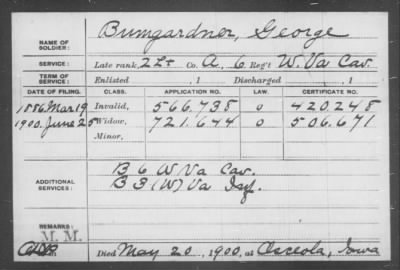 NAME OF SOLDIER: Bumgardner, George
SERVICE: Late rank, 2 Lt Co. A, 6 Reg't W. Va Cav.
TERM OF SERVICE: Enlisted , 1 Discharged , 1
DATE OF FILING. CLASS. APPLICATION NO. LAW. CERTIFICATE NO.
1886 Mar 19 Invalid, 566.738 0 420248
1900. June 25 Widow, 721.644 0 506.671
Minor,
ADDITIONAL SERVICES: B 6 W Va Cav.
B 3 (W) Va Inf.
REMARKS:
M. M.
Died May 20, 1900, at Osceola, Iowa